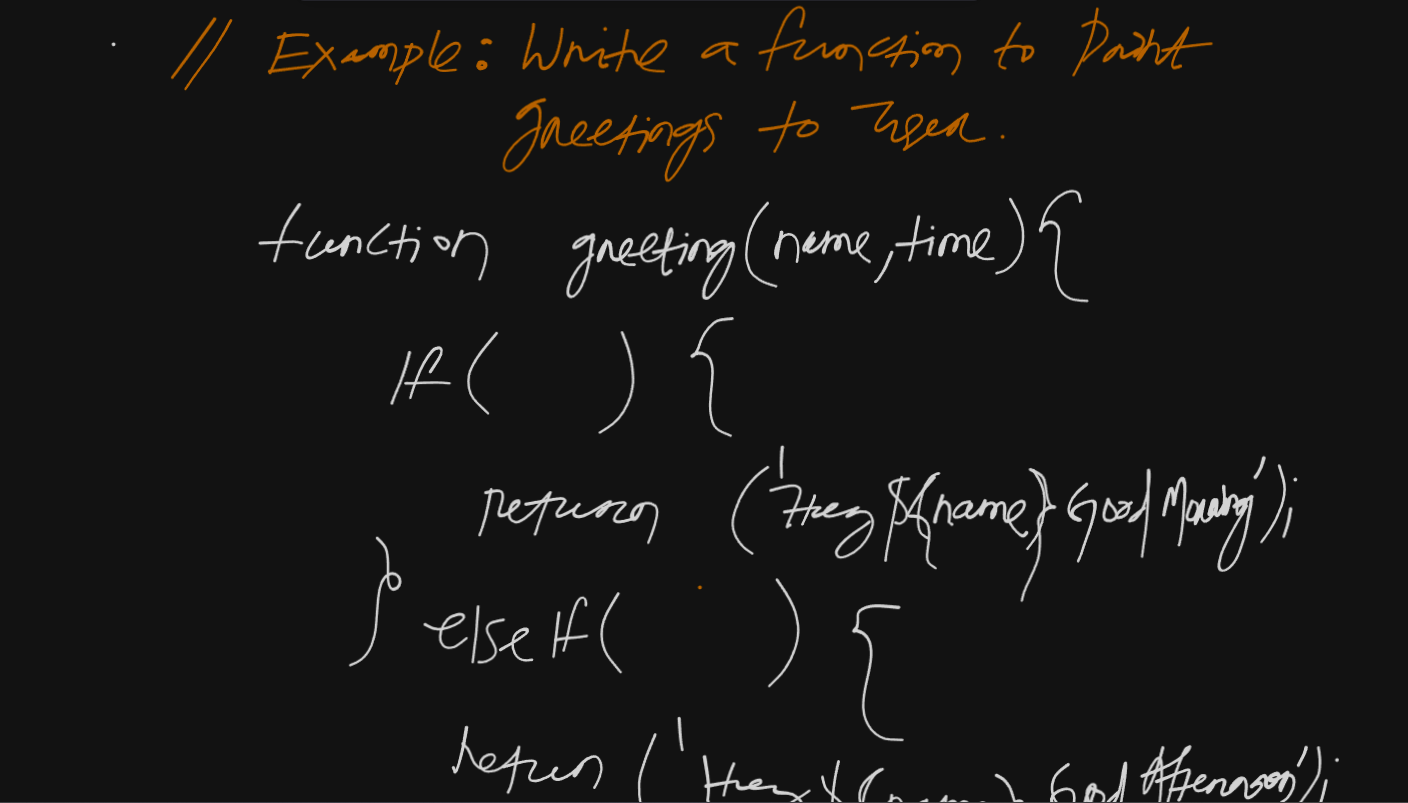 // Example: Write a function to Print
greetings to user.
function greeting(name,time){
If( ) {
return ('Hey ${name} Good Morning');
} else If( ) {
return ('Hey ${name} Good Afternoon');